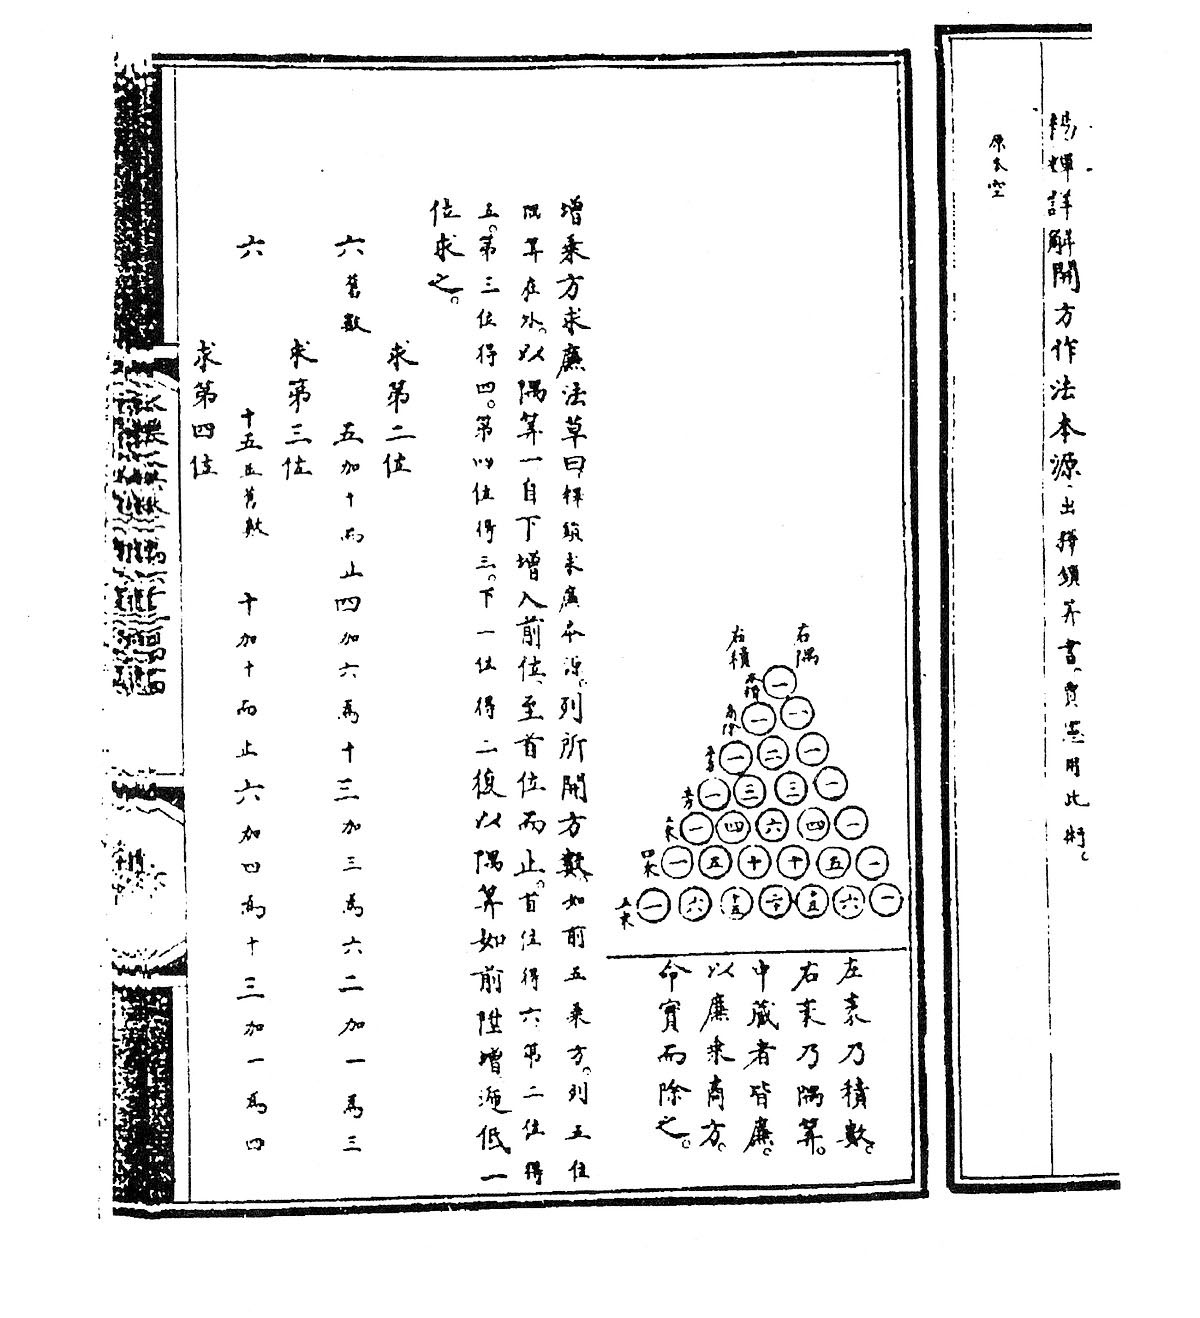 楊輝詳解開方作法本源、出釋鎖筭書、賈憲用此術。
原本空
右隅
右積
本積 一
商除 一 一
平方 一 二 一
一 三 三 一
三乘 一 四 六 四 一
四乘 一 五 十 十 五 一
五乘 一 六 十五 二十 十五 六 一
左袤乃積數。
右袤乃隅筭。
中藏者皆廉。
以廉乘商方。
命實而除之。
增乘方求廉法草曰、釋鎖求廉本源、列所開方數、如前五乘方。列五位
隅筭在外。以隅筭一自下增入前位、至首位而止。首位得六第二位得
五。第三位得四。第四位得三。下一位得二復以隅筭如前陞增遞低一
位求之。
求第二位
六舊數 五加十而止 四加六為十 三加三為六 二加一為三
求第三位
六 十五並舊數 十加十而止 六加四為十 三加一為四
求第四位